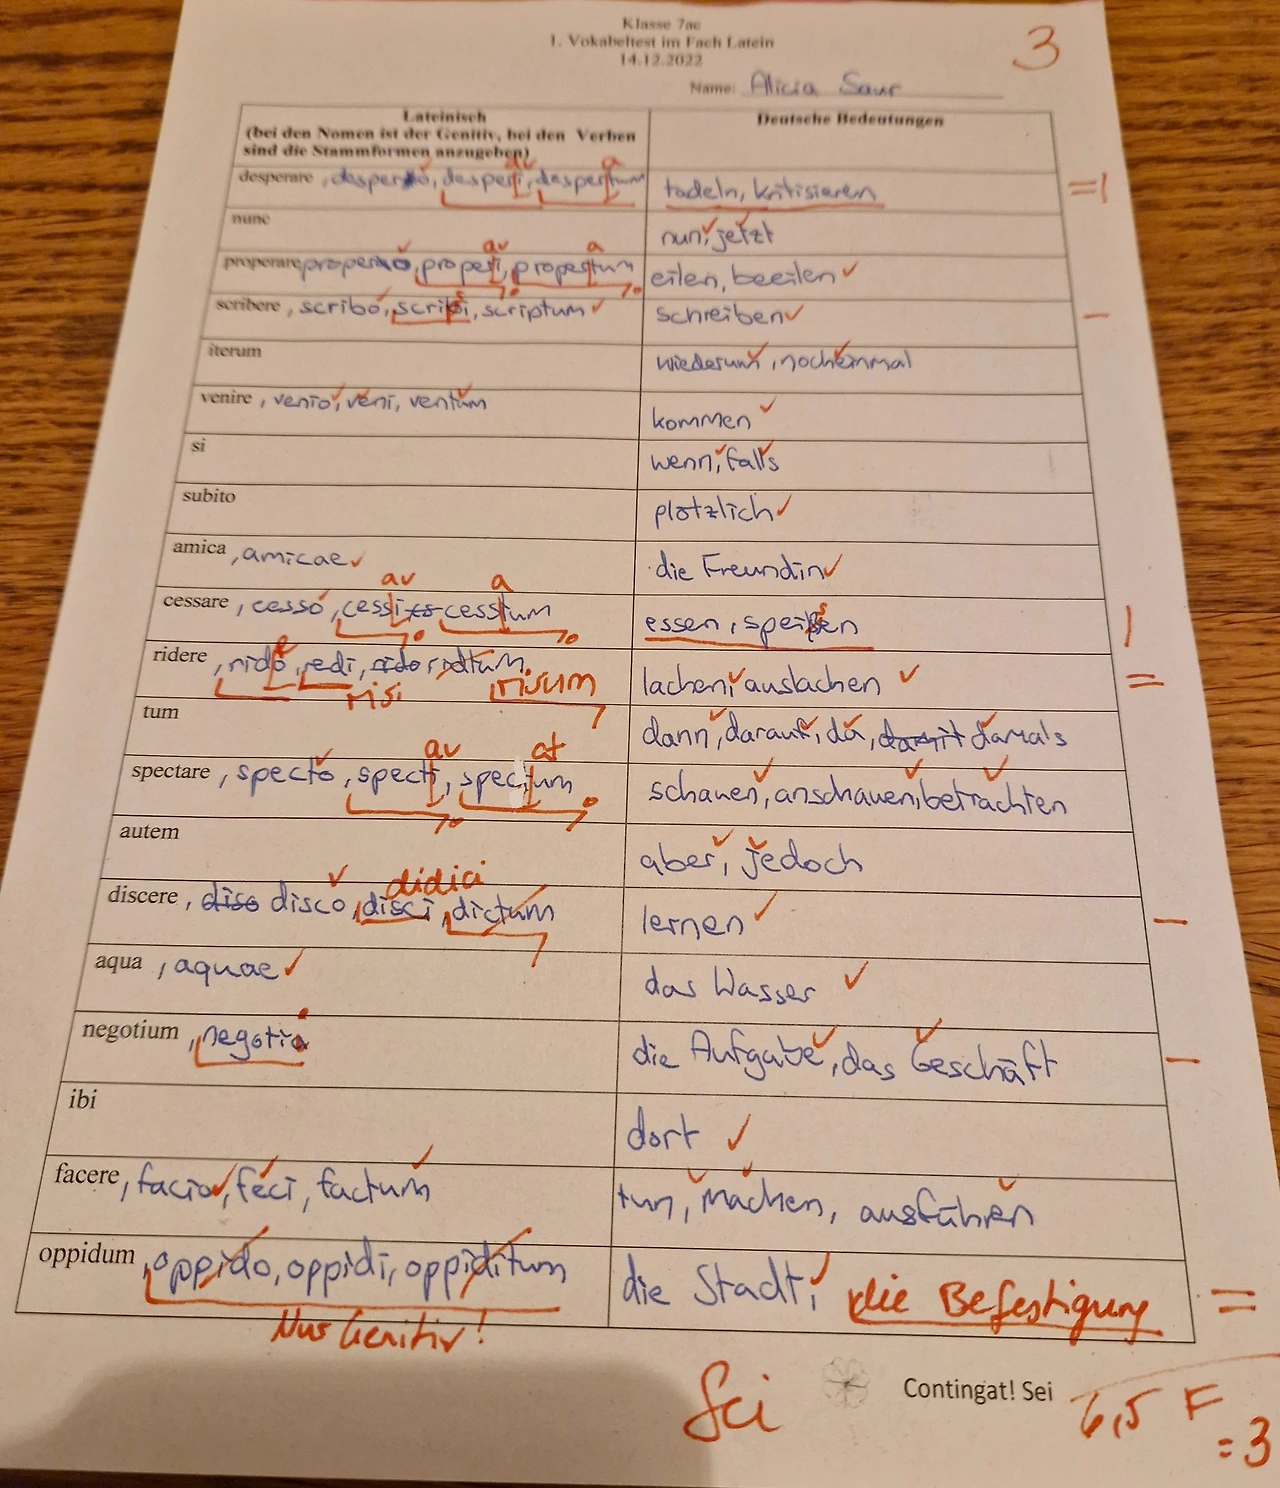 Klasse 7ac
1. Vokabeltest im Fach Latein
14.12.2022
3
Name: Alicia Saur
Lateinisch
(bei den Nomen ist der Genitiv, bei den Verben
sind die Stammformen anzugeben)
Deutsche Bedeutungen
av a
desperare , despero, desperi, despertum tadeln, kritisieren =1
nunc nun, jetzt
av a
properare propero, properi, propertum eilen, beeilen
scribere , scribo, scripsi, scriptum schreiben –
iterum wiederum, nocheinmal
venire , venio, veni, ventum kommen
si wenn, falls
subito plötzlich
amica , amicae die Freundin
av a
cessare , cesso, cessi, cesstum essen, speisen |
e
ridere , rido, redi, rido ridtum lachen, auslachen =
risi risum
tum dann, darauf, da, damit damals
av at
spectare , specto, specti, spectum schauen, anschauen, betrachten
autem aber, jedoch
didici
discere , diso disco, disci, dictum lernen –
aqua , aquae das Wasser
negotium , negotia die Aufgabe, das Geschäft –
ibi dort
facere , facio, feci, factum tun, machen, ausführen
oppidum , oppido, oppidi, oppiditum die Stadt, die Befestigung =
Nur Genitiv!
Sei Contingat! Sei
6,5 F
= 3